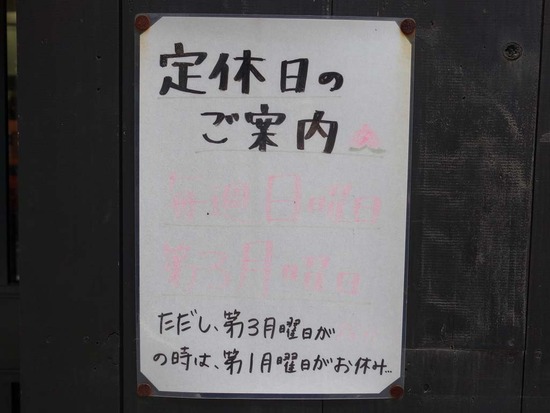 定休日の
ご案内
毎週日曜日
第3月曜日
ただし、第3月曜日が
の時は、第1月曜日がお休み…